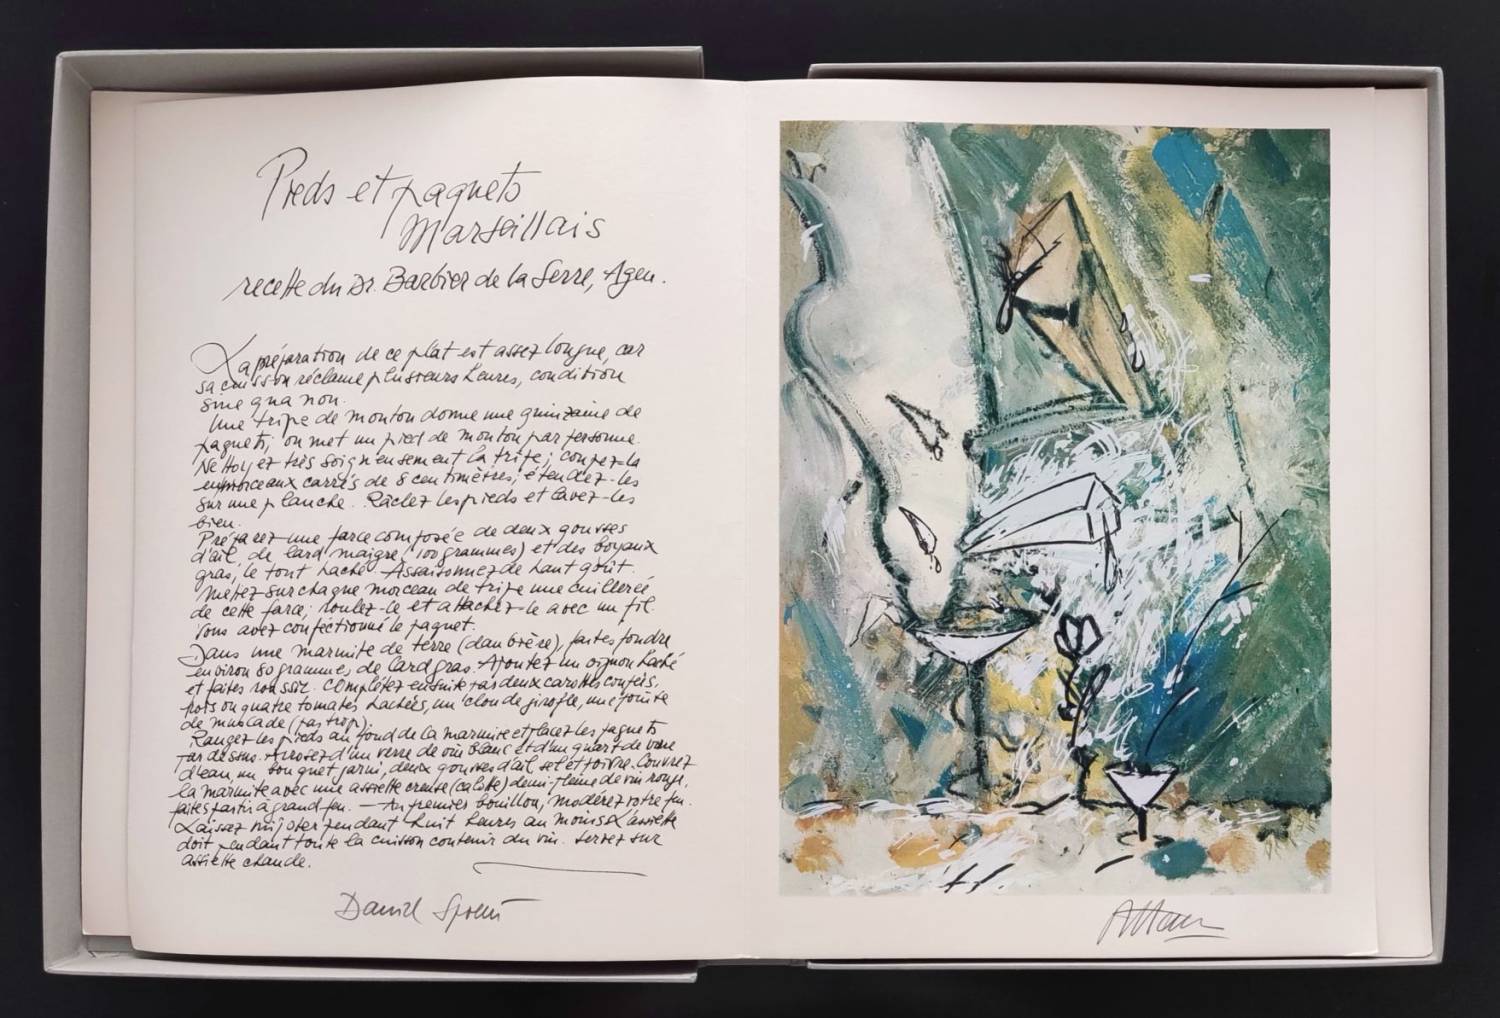 Pieds et paquets
Marseillais
recette du Dr. Barbier de la Serre, Agen.
La préparation de ce plat est assez longue, car
sa cuisson réclame plusieurs heures, condition
sine qua non.
Une tripe de mouton donne une quinzaine de
paquets, on met un pied de mouton par personne.
Nettoyez très soigneusement la tripe; coupez-la
en morceaux carrés de 8 centimètres, étendez-les
sur une planche. Râclez les pieds et lavez-les
bien.
Préparez une farce composée de deux gousses
d'ail, de lard maigre (100 grammes) et des boyaux
gras, le tout haché. Assaisonnez de haut goût.
Mettez sur chaque morceau de tripe une cuillerée
de cette farce; roulez-le et attachez-le avec un fil.
Vous avez confectionné le paquet.
Dans une marmite de terre (daubière), faites fondre
environ 80 grammes de lard gras. Ajoutez un oignon haché
et faites roussir. Complétez ensuite par deux carottes coupées,
trois ou quatre tomates hachées, un clou de girofle, une pointe
de muscade (pas trop).
Rangez les pieds au fond de la marmite et placez les paquets
par dessus. Arrosez d'un verre de vin blanc et d'un quart de verre
d'eau, un bouquet garni, deux gousses d'ail, sel et poivre. Couvrez
la marmite avec une assiette creuse (calotte) demi-pleine de vin rouge,
faites partir à grand feu. — Au premier bouillon, modérez votre feu.
Laissez mijoter pendant huit heures au moins. L'assiette
doit pendant toute la cuisson contenir du vin. Servez sur
assiette chaude.
Daniel